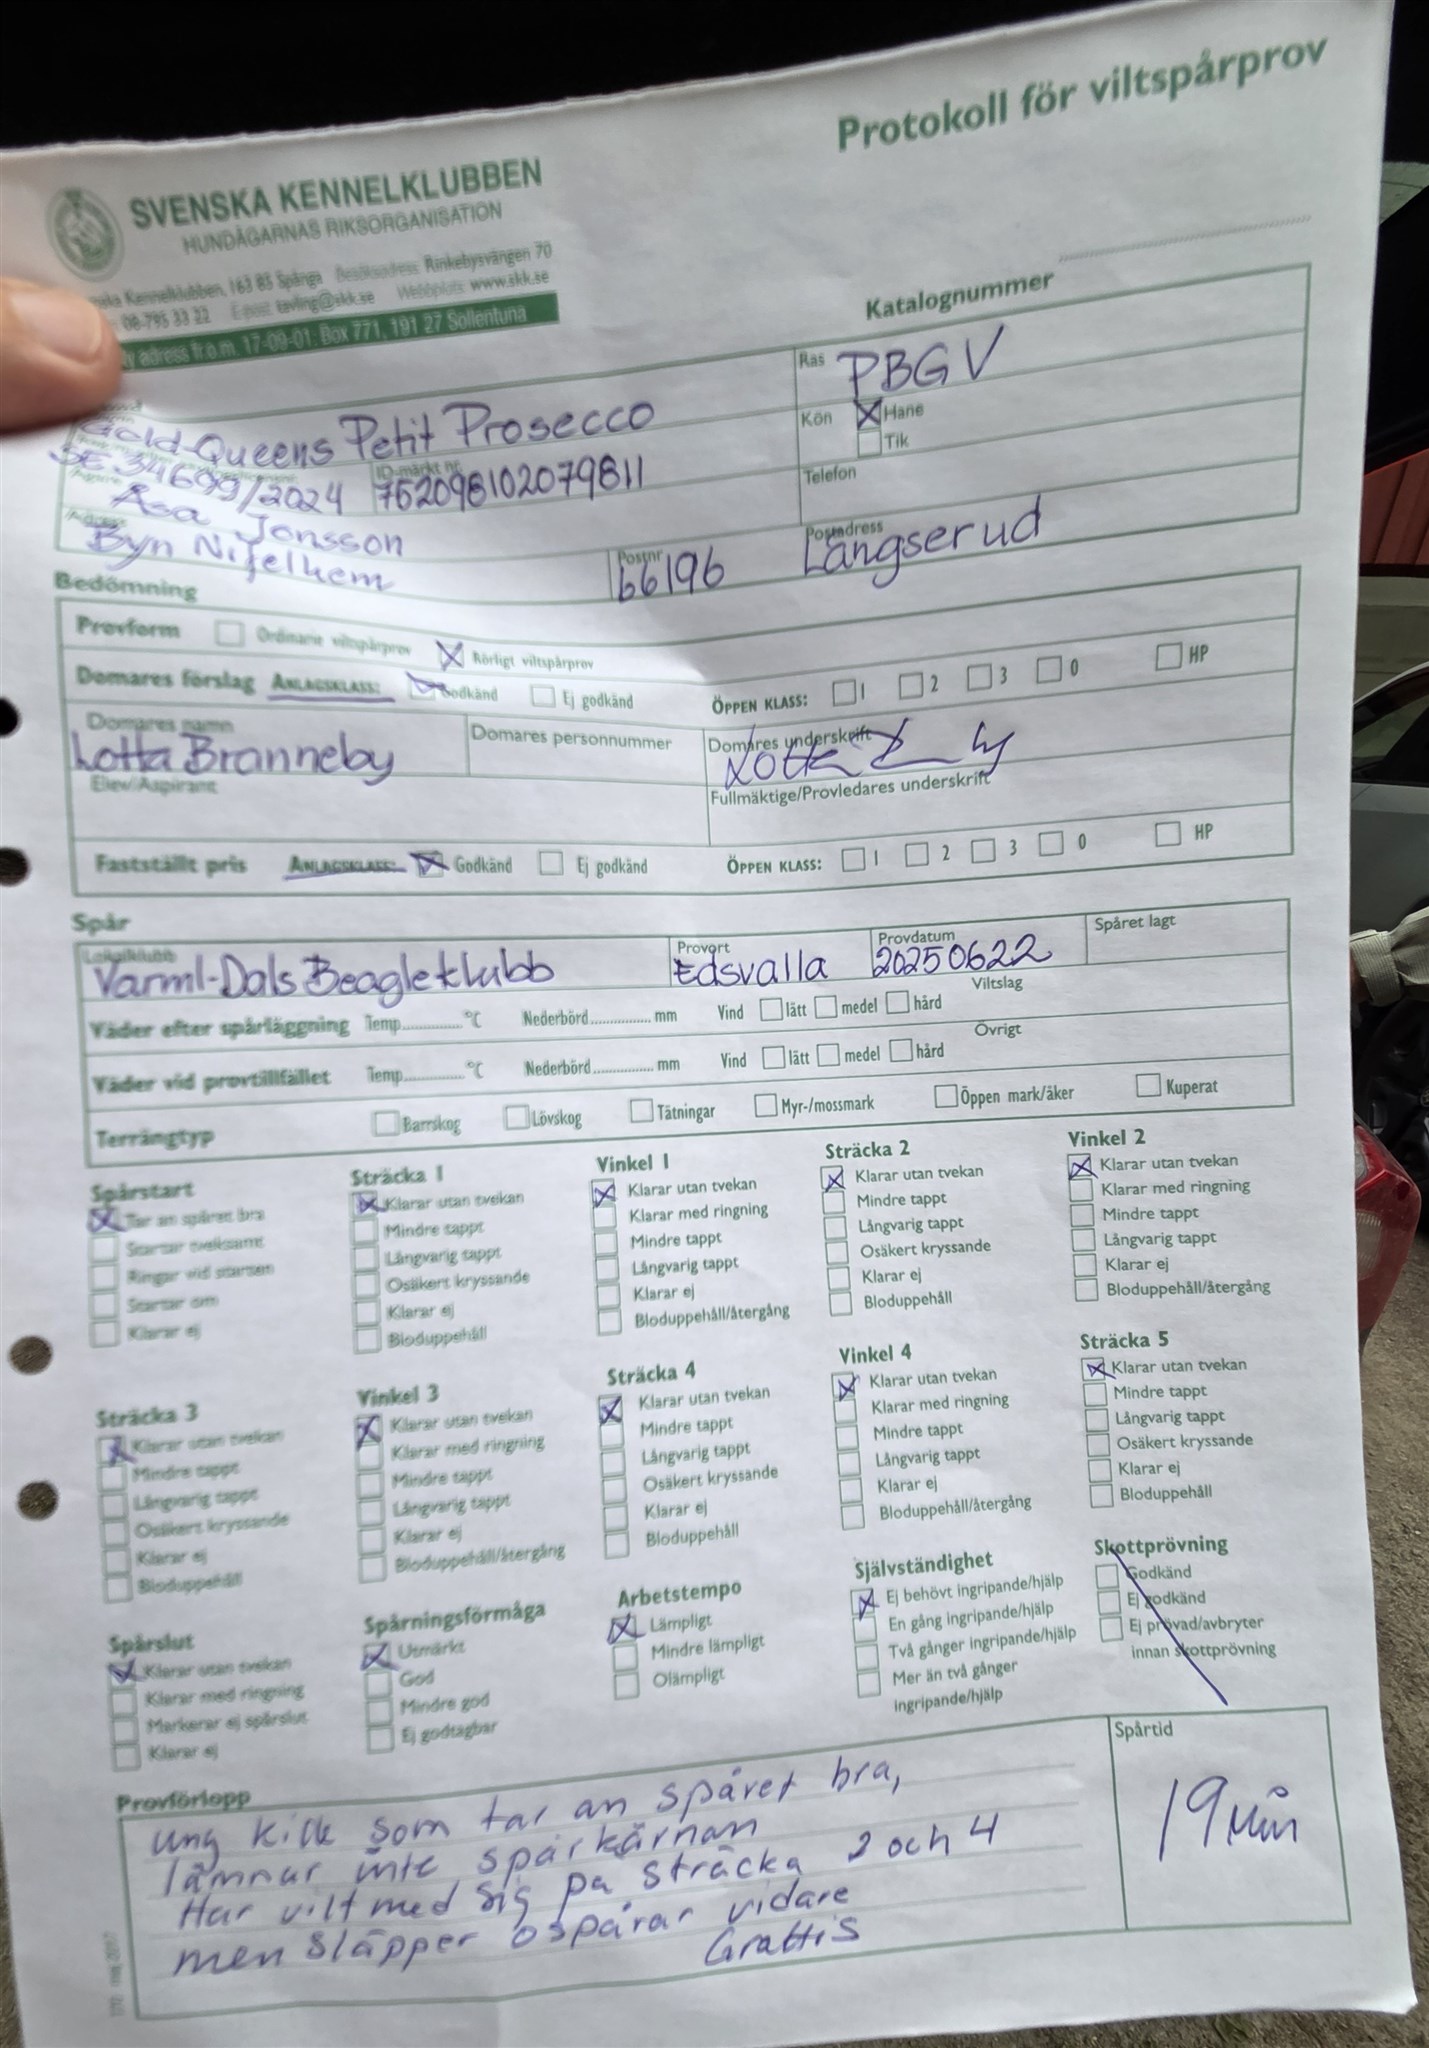 Protokoll för viltspårprov
SVENSKA KENNELKLUBBEN
HUNDÄGARNAS RIKSORGANISATION
Kennelklubben, 163 85 Spånga Besöksadress Rinkebysvängen 70
08-795 33 22 E-post tavling@skk.se Webbplats www.skk.se
adress fr.o.m. 17-09-01: Box 771, 191 27 Sollentuna
Katalognummer
Ras PBGV
Gold-Queens Petit Prosecco
Kön Hane
Tik
SE34699/2024 ID-märkt nr. 752098102079811
Telefon
Åsa Jonsson
Adress Byn Nifelhem Postnr 66196 Postadress Långserud
Bedömning
Provform Ordinarie viltspårprov Rörligt viltspårprov
Domares förslag ANLAGSKLASS: Godkänd Ej godkänd ÖPPEN KLASS: 1 2 3 0 HP
Domares namn Lotta Branneby Domares personnummer Domares underskrift
Elev/Aspirant Fullmäktige/Provledares underskrift
Fastställt pris ANLAGSKLASS: Godkänd Ej godkänd ÖPPEN KLASS: 1 2 3 0 HP
Spår
Lokalklubb Värml-Dals Beagleklubb Provort Edsvalla Provdatum 20250622 Spåret lagt
Väder efter spårläggning Temp............°C Nederbörd............ mm Vind lätt medel hård Viltslag
Väder vid provtillfället Temp............°C Nederbörd............ mm Vind lätt medel hård Övrigt
Terrängtyp Barrskog Lövskog Tätningar Myr-/mossmark Öppen mark/åker Kuperat
Spårstart
Tar an spåret bra
Startar tveksamt
Ringar vid starten
Startar om
Klarar ej
Sträcka 1
Klarar utan tvekan
Mindre tappt
Långvarig tappt
Osäkert kryssande
Klarar ej
Bloduppehåll
Vinkel 1
Klarar utan tvekan
Klarar med ringning
Mindre tappt
Långvarig tappt
Klarar ej
Bloduppehåll/återgång
Sträcka 2
Klarar utan tvekan
Mindre tappt
Långvarig tappt
Osäkert kryssande
Klarar ej
Bloduppehåll
Vinkel 2
Klarar utan tvekan
Klarar med ringning
Mindre tappt
Långvarig tappt
Klarar ej
Bloduppehåll/återgång
Sträcka 3
Klarar utan tvekan
Mindre tappt
Långvarig tappt
Osäkert kryssande
Klarar ej
Bloduppehåll
Vinkel 3
Klarar utan tvekan
Klarar med ringning
Mindre tappt
Långvarig tappt
Klarar ej
Bloduppehåll/återgång
Sträcka 4
Klarar utan tvekan
Mindre tappt
Långvarig tappt
Osäkert kryssande
Klarar ej
Bloduppehåll
Vinkel 4
Klarar utan tvekan
Klarar med ringning
Mindre tappt
Långvarig tappt
Klarar ej
Bloduppehåll/återgång
Sträcka 5
Klarar utan tvekan
Mindre tappt
Långvarig tappt
Osäkert kryssande
Klarar ej
Bloduppehåll
Spårslut
Klarar utan tvekan
Klarar med ringning
Markerar ej spårslut
Klarar ej
Spårningsförmåga
Utmärkt
God
Mindre god
Ej godtagbar
Arbetstempo
Lämpligt
Mindre lämpligt
Olämpligt
Självständighet
Ej behövt ingripande/hjälp
En gång ingripande/hjälp
Två gånger ingripande/hjälp
Mer än två gånger
ingripande/hjälp
Skottprövning
Godkänd
Ej godkänd
Ej prövad/avbryter
innan skottprövning
Provförlopp
Ung kille som tar an spåret bra,
lämnar inte spårkärnan
Har vilt med sig på sträcka 2 och 4
men släpper o spårar vidare
Grattis
Spårtid
19 min